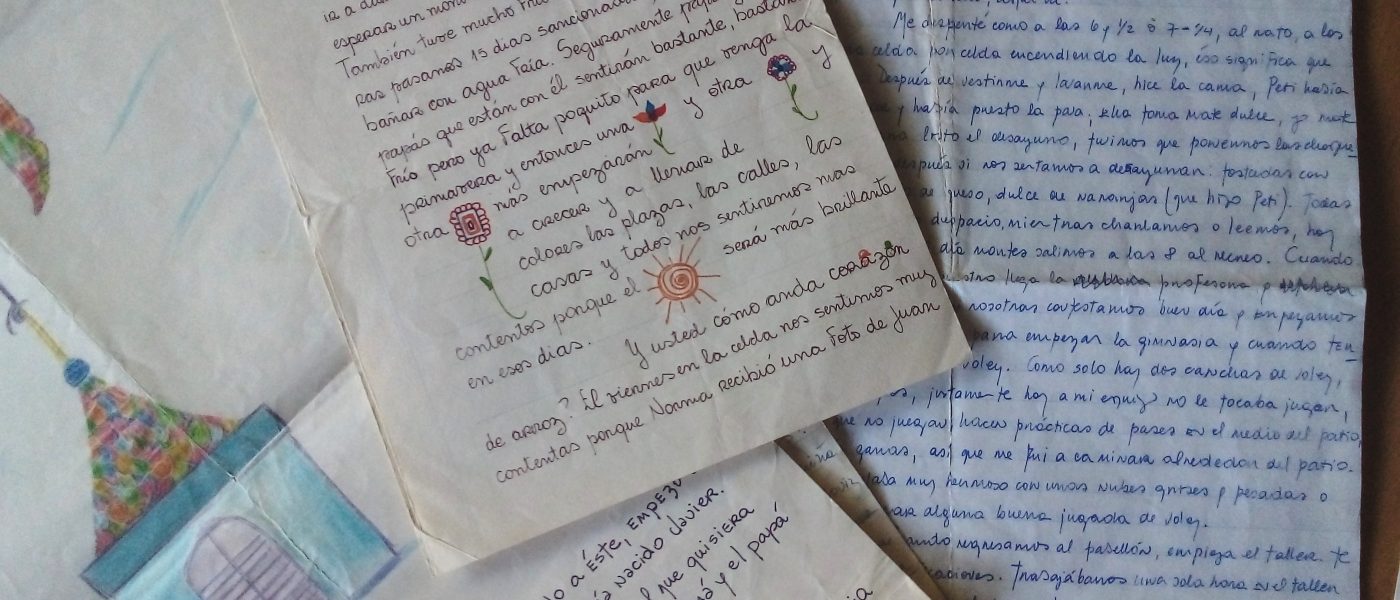 esperar un mon
También tuve mucho
ras pasamos 15 días sancionado
bañar con agua fría. Seguramente
papás que están con él sentirán bastante, bastan
frío pero ya falta poquito para que venga la
primavera y entonces una y otra y
otra más empezarán
a crecer y a llenar de
colores las plazas, las calles, las
casas y todos nos sentiremos mas
contentos porque el será más brillante
en esos días.
Y usted cómo anda corazón
de arroz? El viernes en la celda nos sentimos muy
contentas porque Norma recibió una foto de Juan
o a Éste, empezó
nacido Javier.
l que quisiera
y el papá
Me desperté como a las 6 y 1/2 ó 7-1/4, al rato, a los
celda por celda encendiendo la luz, eso significa que
Después de vestirme y lavarme, hice la cama, Peti había
y había puesto la pava; ella toma mate dulce, yo mate
listo el desayuno, tuvimos que ponernos
después si nos sentamos a desayunar: tostadas con
de queso, dulce de naranjas (que hizo Peti). Todas
despacio, mientras charlamos o leemos, hoy
día martes salimos a las 8 al recreo. Cuando
llega la profesora y
nosotras contestamos buen día y empezamos
para empezar la gimnasia y cuando ter
voley. Como solo hay dos canchas de voley,
justamente hoy a mi equipo no le tocaba jugar,
que no juegan hacen prácticas de pases en el medio del patio,
ganas, así que me fui a caminar alrededor del patio.
muy hermoso con unas nubes grises y pesadas o
alguna buena jugada de voley.
regresamos al pabellón, empieza el taller. Te
Trabajábamos una sola hora en el taller